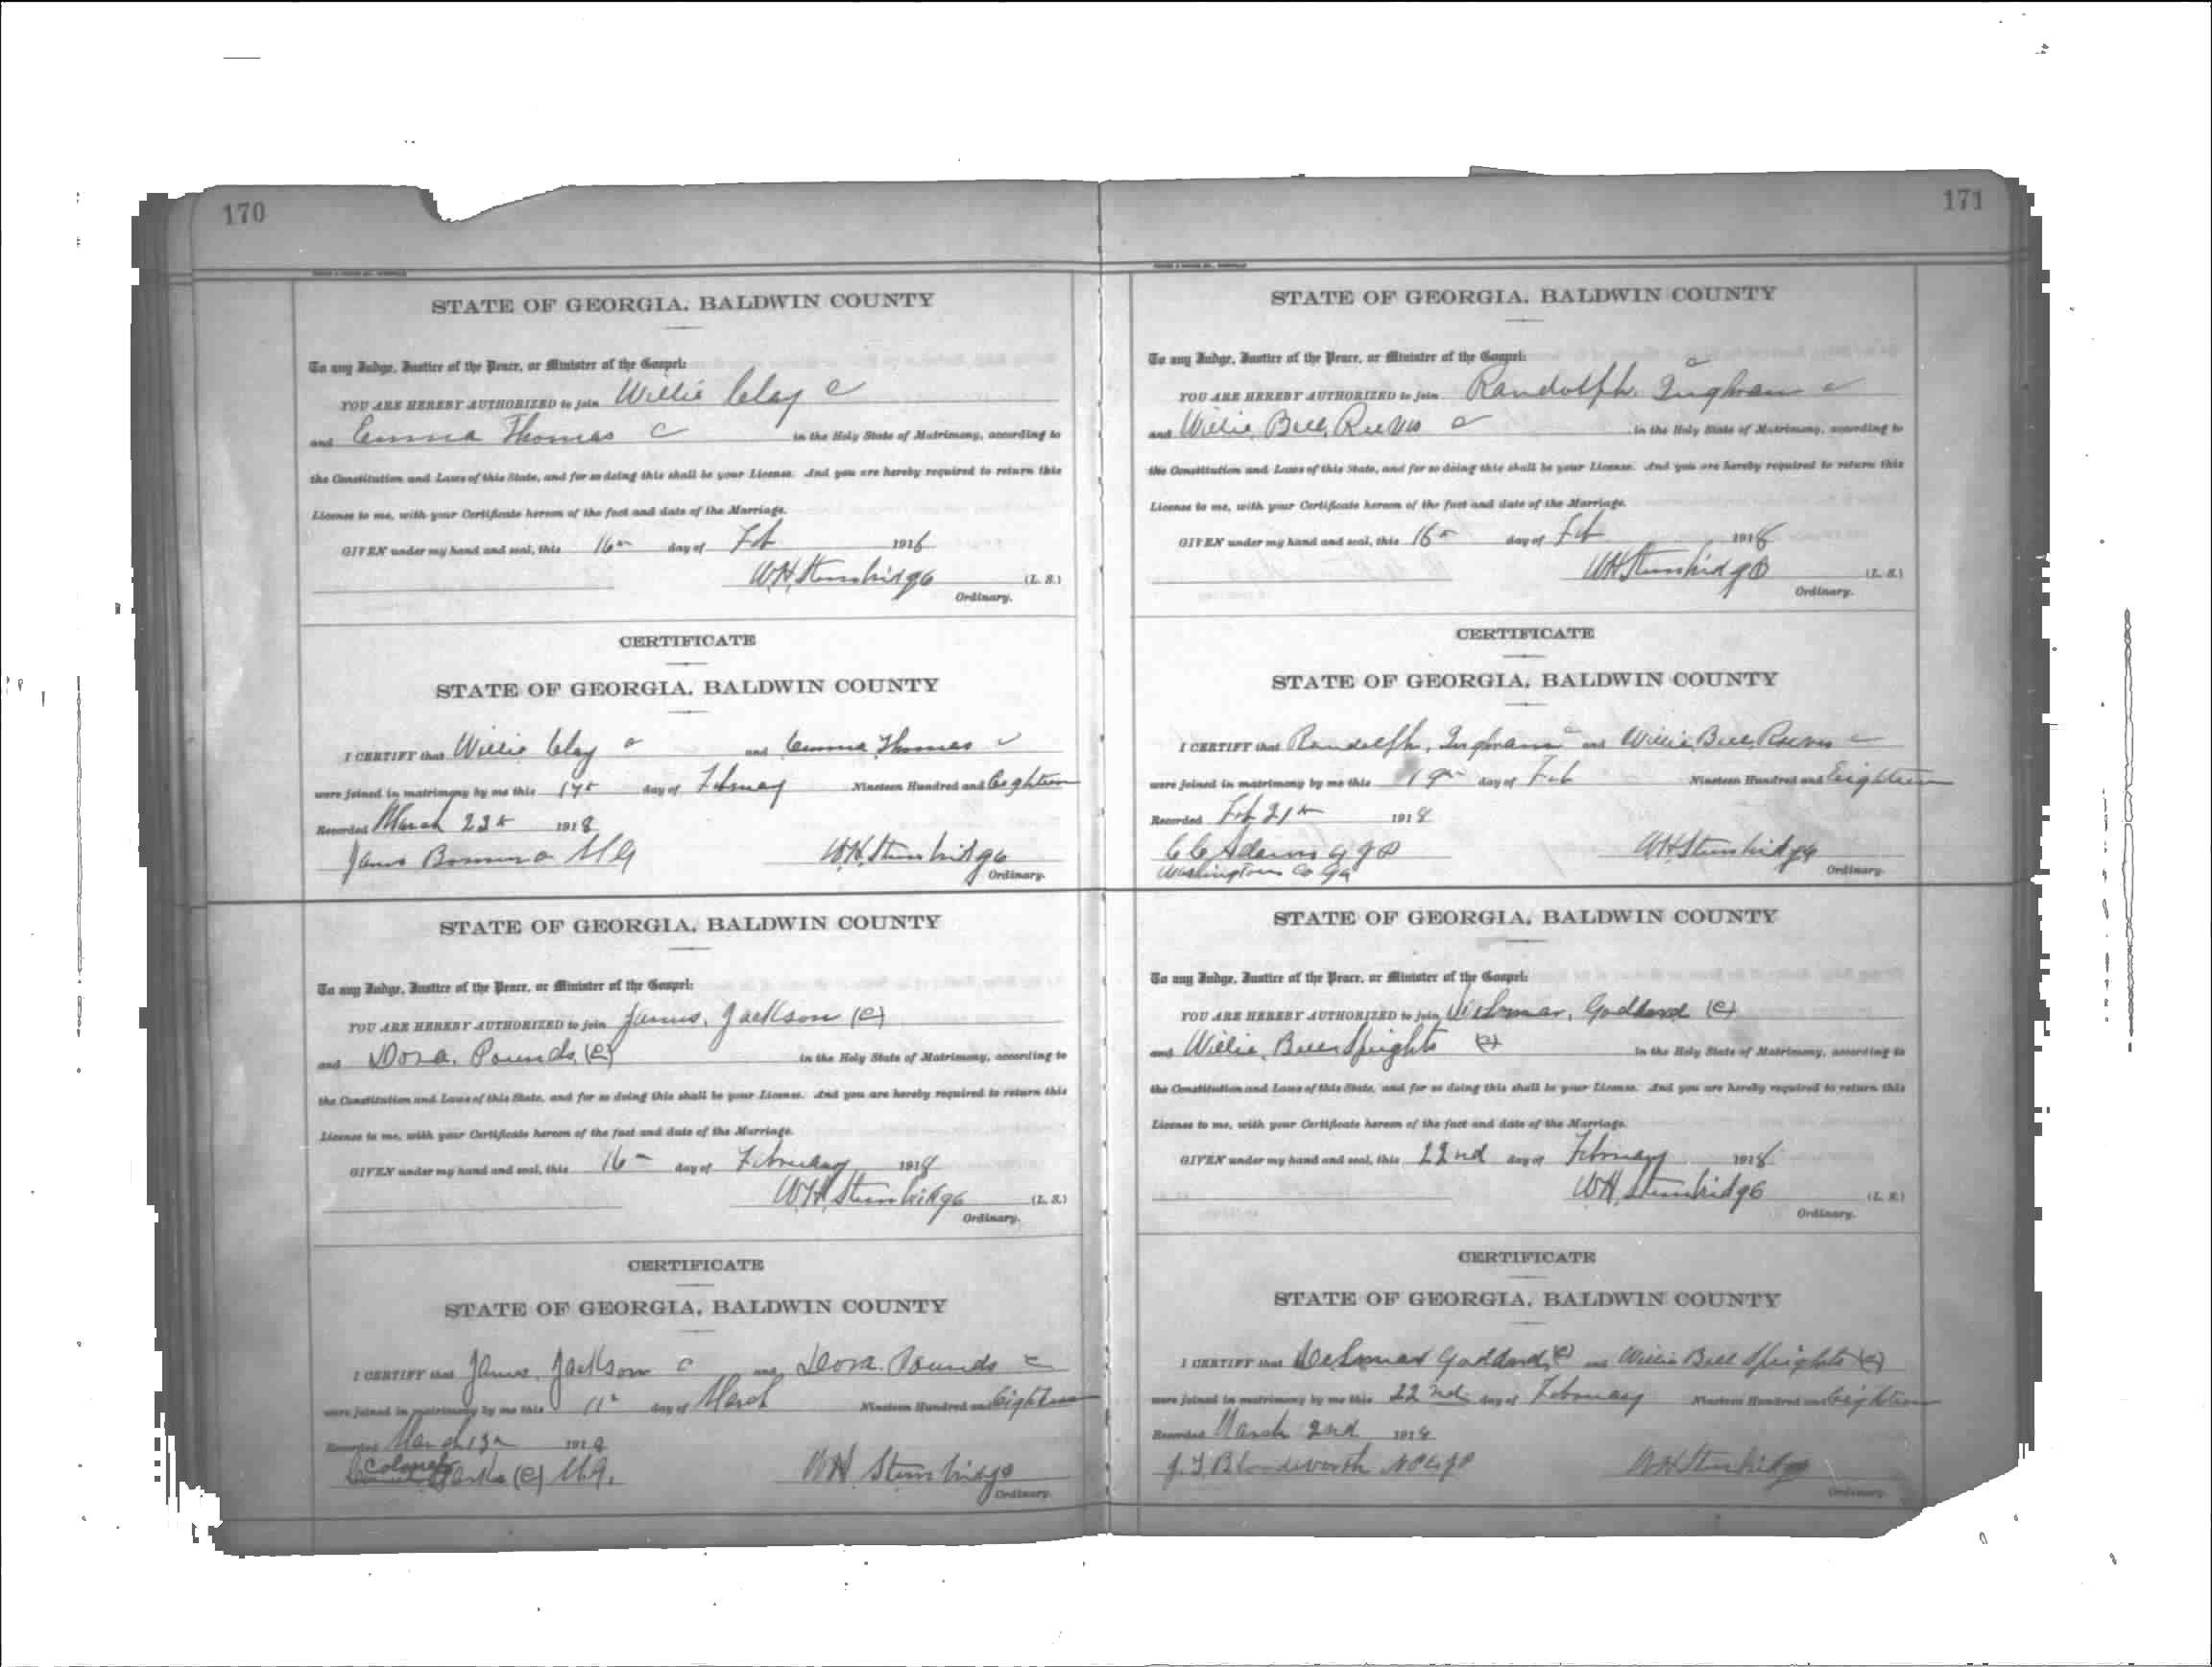 170
STATE OF GEORGIA, BALDWIN COUNTY
To any Judge, Justice of the Peace, or Minister of the Gospel:
YOU ARE HEREBY AUTHORIZED to join Willie Clay c
and Emma Thomas c in the Holy State of Matrimony, according to
the Constitution and Laws of this State, and for so doing this shall be your License. And you are hereby required to return this
License to me, with your Certificate hereon of the fact and date of the Marriage.
GIVEN under my hand and seal, this 16th day of Feb 1918
W.H. Stembridge (L. S.)
Ordinary.
CERTIFICATE
STATE OF GEORGIA, BALDWIN COUNTY
I CERTIFY that Willie Clay c and Emma Thomas c
were joined in matrimony by me this 17th day of February Nineteen Hundred and Eighteen
Recorded March 23rd 1918
James M.G. W.H. Stembridge
Ordinary.
STATE OF GEORGIA, BALDWIN COUNTY
To any Judge, Justice of the Peace, or Minister of the Gospel:
YOU ARE HEREBY AUTHORIZED to join James Jackson (C)
and Dora Pounds (C) in the Holy State of Matrimony, according to
the Constitution and Laws of this State, and for so doing this shall be your License. And you are hereby required to return this
License to me, with your Certificate hereon of the fact and date of the Marriage.
GIVEN under my hand and seal, this 16th day of February 1918
W.H. Stembridge (L. S.)
Ordinary.
CERTIFICATE
STATE OF GEORGIA, BALDWIN COUNTY
I CERTIFY that James Jackson c and Dora Pounds c
were joined in matrimony by me this 11th day of March Nineteen Hundred and Eighteen
Recorded March 13th 1918
(C) M.G. W.H. Stembridge
Ordinary.
171
STATE OF GEORGIA, BALDWIN COUNTY
To any Judge, Justice of the Peace, or Minister of the Gospel:
YOU ARE HEREBY AUTHORIZED to join Randolph Inghram c
and Willie Bell Reeves c in the Holy State of Matrimony, according to
the Constitution and Laws of this State, and for so doing this shall be your License. And you are hereby required to return this
License to me, with your Certificate hereon of the fact and date of the Marriage.
GIVEN under my hand and seal, this 16th day of Feb 1918
W.H. Stembridge (L. S.)
Ordinary.
CERTIFICATE
STATE OF GEORGIA, BALDWIN COUNTY
I CERTIFY that Randolph Inghram c and Willie Bell Reeves c
were joined in matrimony by me this 19th day of Feb Nineteen Hundred and Eighteen
Recorded Feb 21st 1918
C C Adams J P W.H. Stembridge
Washington Co Ga Ordinary.
STATE OF GEORGIA, BALDWIN COUNTY
To any Judge, Justice of the Peace, or Minister of the Gospel:
YOU ARE HEREBY AUTHORIZED to join Delmar Goddard (C)
and Willie Bell Speights (C) in the Holy State of Matrimony, according to
the Constitution and Laws of this State, and for so doing this shall be your License. And you are hereby required to return this
License to me, with your Certificate hereon of the fact and date of the Marriage.
GIVEN under my hand and seal, this 22nd day of February 1918
W.H. Stembridge (L. S.)
Ordinary.
CERTIFICATE
STATE OF GEORGIA, BALDWIN COUNTY
I CERTIFY that Delmar Goddard (C) and Willie Bell Speights (C)
were joined in matrimony by me this 22nd day of February Nineteen Hundred and Eighteen
Recorded March 2nd 1918
J. T. Bloodworth W.H. Stembridge
Ordinary.